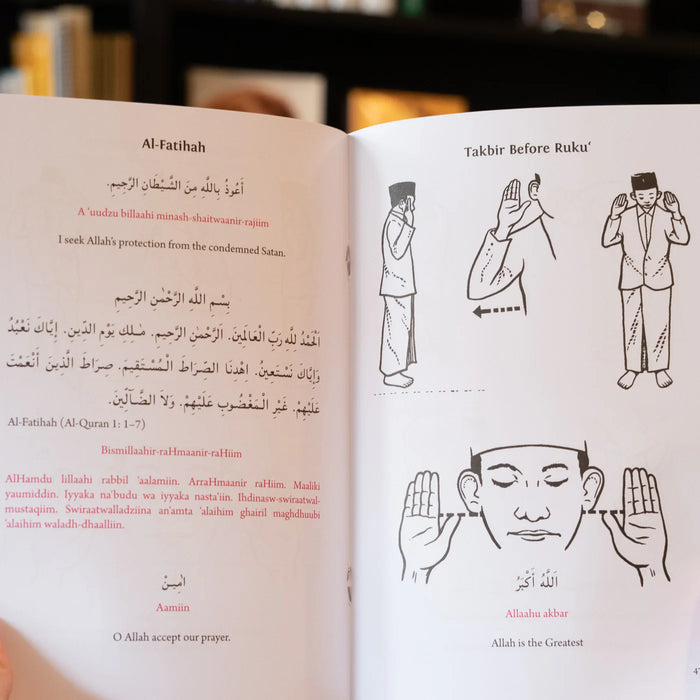 Al-Fatihah
أَعُوذُ بِاللَّهِ مِنَ الشَّيْطَانِ الرَّجِيْمِ.
A ‘uudzu billaahi minash-shaitwaanir-rajiim
I seek Allah’s protection from the condemned Satan.
بِسْمِ اللَّهِ الرَّحْمٰنِ الرَّحِيْمِ
اَلْحَمْدُ لِلَّهِ رَبِّ الْعَالَمِيْنَ. الرَّحْمٰنِ الرَّحِيمِ. مٰلِكِ يَوْمِ الدِّينِ. إِيَّاكَ نَعْبُدُ
وَإِيَّاكَ نَسْتَعِينُ. اِهْدِنَا الصِّرَاطَ الْمُسْتَقِيمَ. صِرَاطَ الَّذِينَ أَنْعَمْتَ
عَلَيْهِمْ. غَيْرِ الْمَغْضُوبِ عَلَيْهِمْ. وَلَا الضَّآلِّينَ.
Al-Fatihah (Al-Quran 1: 1–7)
Bismillaahir-raHmaanir-raHiim
AlHamdu lillaahi rabbil ‘aalamiin. ArraHmaanir raHiim. Maaliki
yaumiddin. Iyyaka na’budu wa iyyaka nasta’iin. Ihdinasw-swiraatwal-
mustaqiim. Swiraatwalladziina an’amta ‘alaihim ghairil maghdhuubi
‘alaihim waladh-dhaalliin.
اٰمِينْ
Aamiin
O Allah accept our prayer.
Takbir Before Ruku‘
اَللَّهُ أَكْبَرُ
Allaahu akbar
Allah is the Greatest